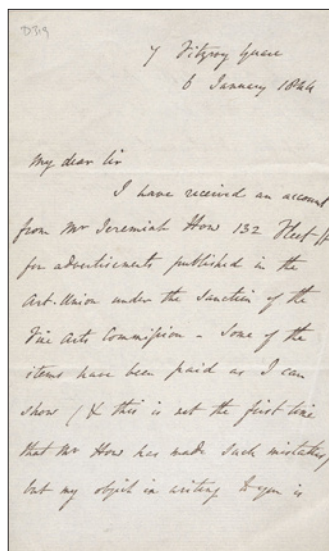 D319
7 Fitzroy Square
6 January 1844
My dear Sir
I have received an account
from Mr Jeremiah How 132 Fleet St
for advertisements published in the
Art-Union under the sanction of the
Fine Arts Commission - Some of the
items have been paid as I can
show (& this is not the first time
that Mr How has made such mistakes)
but my object in writing to you is